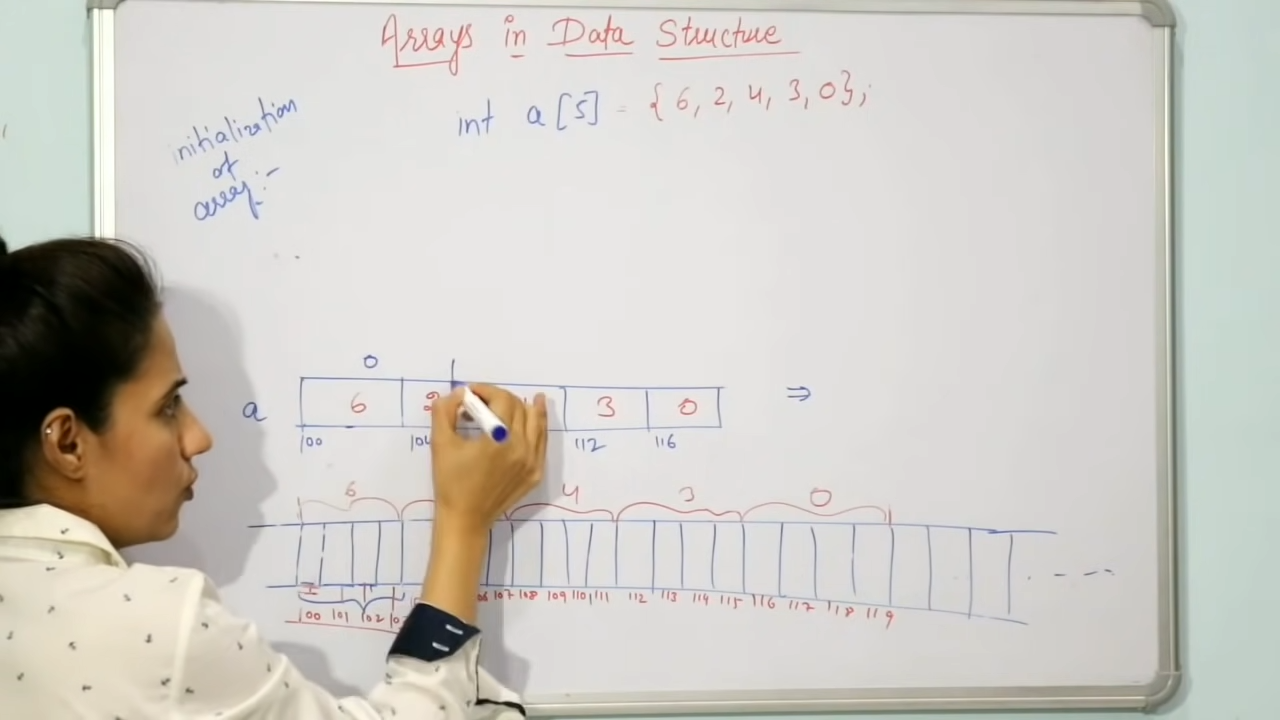 Arrays in Data Structure
int a[5] = {6, 2, 4, 3, 0};
initialization
of
array:-
0
a 6 2 3 0 ⇒
100 104 112 116
6 4 3 0
100 101 102 107 108 109 110 111 112 113 114 115 116 117 118 119